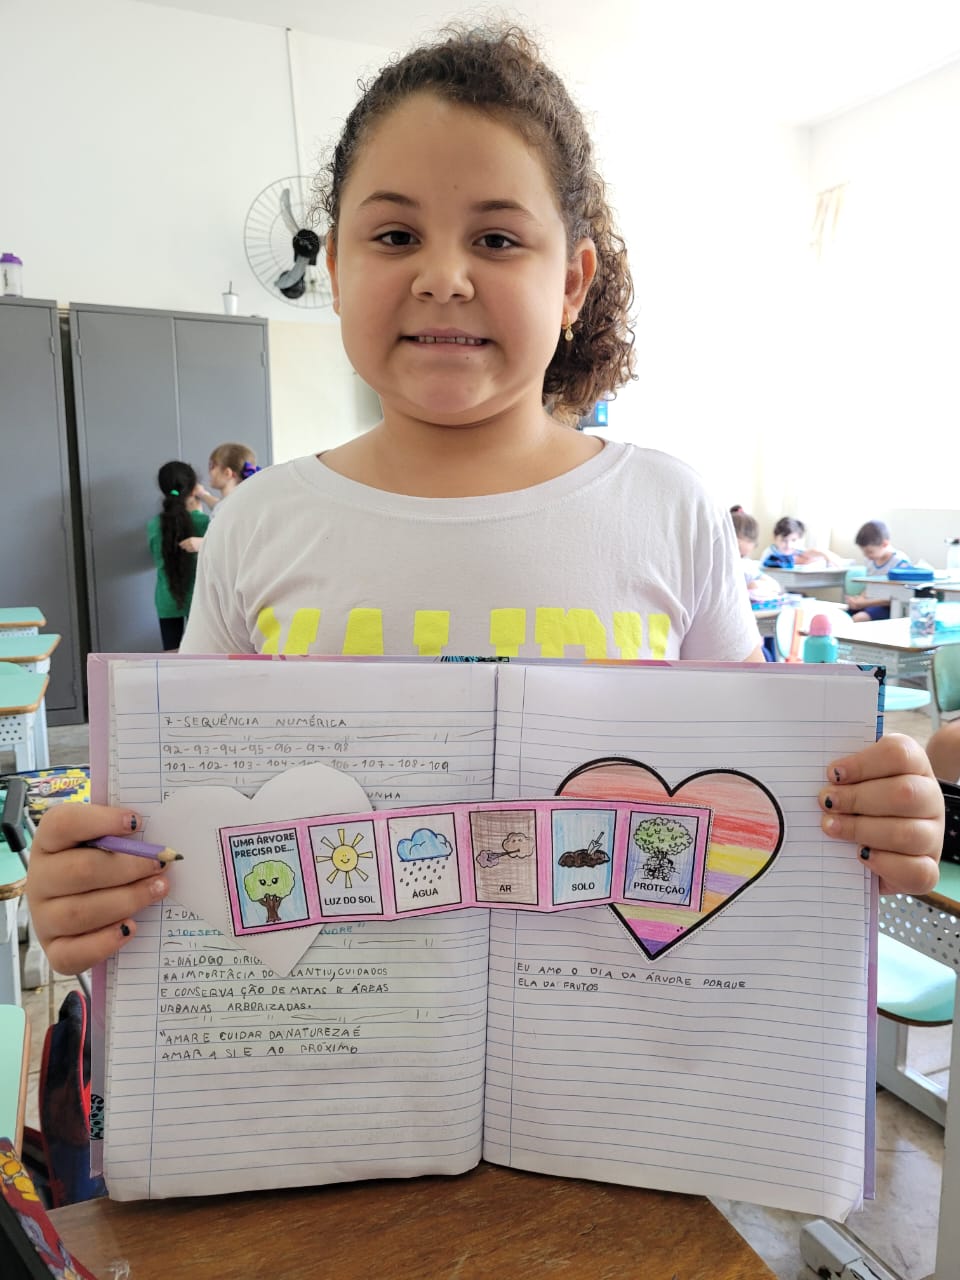 7-SEQUÊNCIA NUMÉRICA
92-93-94-95-96-97-98
101-102-103-104-105-106-107-108-109
UMA ÁRVORE
PRECISA DE...
LUZ DO SOL
ÁGUA
AR
SOLO
PROTEÇÃO
2-DIÁLOGO
A IMPORTÂCIA DO PLANTIU, CUIDADOS
E CONSERVA ÇÃO DE MATAS E ÁREAS
URBANAS ARBORIZADAS.
"AMAR E CUIDAR DA NATUREZA É
AMAR A SI E AO PRÓXIMO
EU AMO O DIA DA ÁRVORE PORQUE
ELA DA FRUTOS